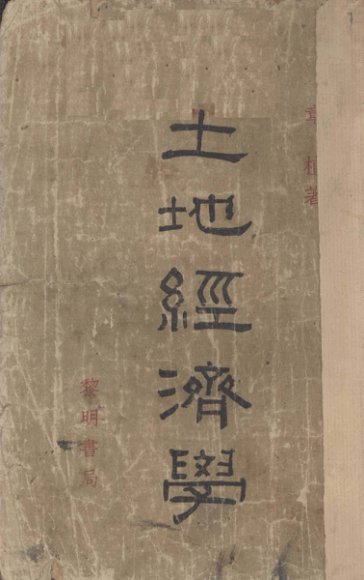 章植著
土地經濟學
黎明書局